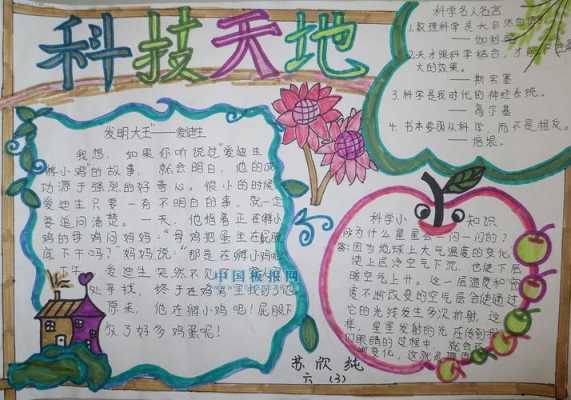 科技天地
发明大王"——爱迪生
我想，如果你听说过"爱迪生
孵小鸡"的故事，就会明白，他的成
功源于强烈的好奇心。很小的时候
爱迪生只要一有不明白的事，就一定
要追问清楚。一天，他指着正在孵小
鸡的母鸡问妈妈："母鸡把蛋坐在屁股
底下干吗？"妈妈说："那是在孵小鸡呢
爱迪生突然不见了
处寻找，终于在鸡窝里找到了他
原来，他在孵小鸡呢！屁股下
放了好多鸡蛋呢！
中国板报网
科学名人名言
1.数理科学是大自然
——伽利略
2.天才跟科学结合，才能
大的效果。
——斯宾塞
3.科学是我时代的神经系统。
——高尔基
4.书本要服从科学，而不是相反。
——培根。
科学小知识
为什么星星会一闪一闪的？
答：因为地球上大气温度的变化，
使上层冷空气下沉，也使下层
暖空气上升。这一层温度和密
度不断改变的空气层会使通过
它的光线发生多次折射，这
样，星星发射的光在传到我
们眼睛的过程中，就会
变化，这就
苏欣纯
六（3）